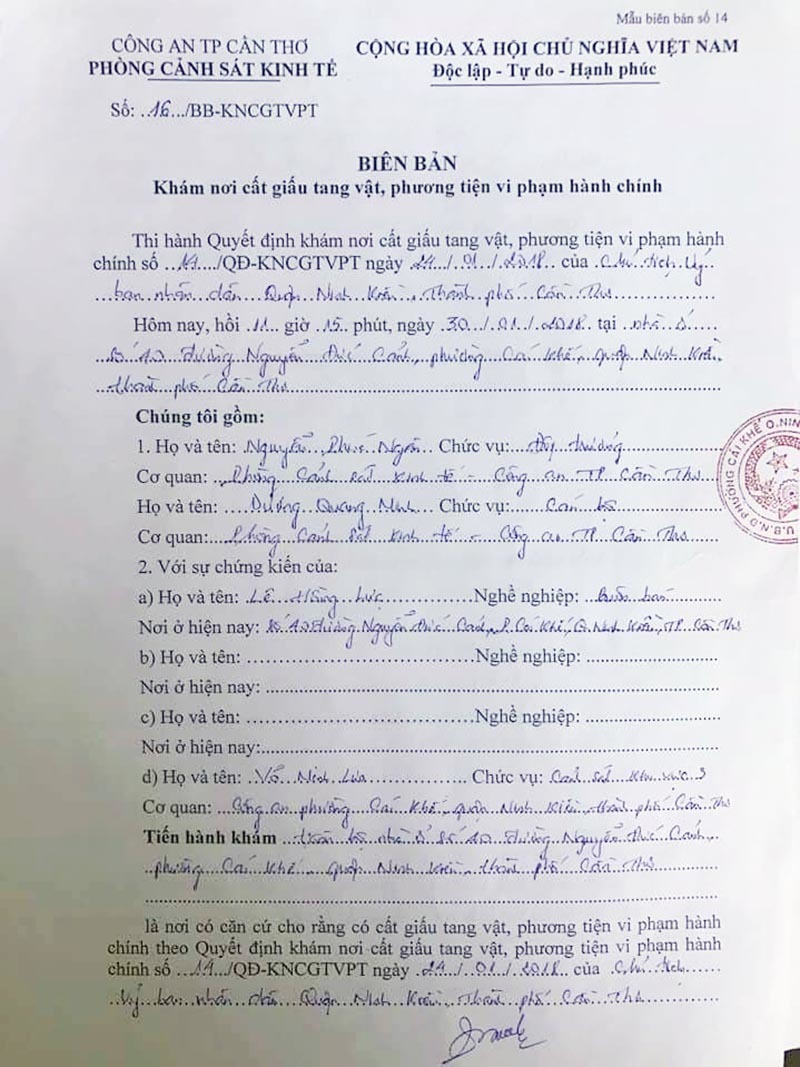 Mẫu biên bản số 14
CÔNG AN TP CẦN THƠ
PHÒNG CẢNH SÁT KINH TẾ
CỘNG HÒA XÃ HỘI CHỦ NGHĨA VIỆT NAM
Độc lập - Tự do - Hạnh phúc
Số: ..16.../BB-KNCGTVPT
BIÊN BẢN
Khám nơi cất giấu tang vật, phương tiện vi phạm hành chính
Thi hành Quyết định khám nơi cất giấu tang vật, phương tiện vi phạm hành
chính số ..../QĐ-KNCGTVPT ngày ../.01./.2018. của ..Chủ tịch Uỷ
ban nhân dân Quận Ninh Kiều, Thành phố Cần Thơ
Hôm nay, hồi .11.. giờ .15.. phút, ngày .30../.01../.2018.. tại ..nhà ở
Số đường Nguyễn Đức Cảnh, phường Cái Khế, quận Ninh Kiều
thành phố Cần Thơ
Chúng tôi gồm:
1. Họ và tên: Nguyễn Ngân Chức vụ: Đội trưởng
Cơ quan: Phòng Cảnh sát Kinh tế - Công an TP Cần Thơ
Họ và tên: Dương Quang Chức vụ: Cán bộ
Cơ quan: Phòng Cảnh sát Kinh tế - Công an TP Cần Thơ
2. Với sự chứng kiến của:
a) Họ và tên: Lê Hồng Lực Nghề nghiệp: buôn bán
Nơi ở hiện nay: Số đường Nguyễn Đức Cảnh, P. Cái Khế, Q. Ninh Kiều, TP Cần Thơ
b) Họ và tên: Nghề nghiệp:
Nơi ở hiện nay:
c) Họ và tên: Nghề nghiệp:
Nơi ở hiện nay:
d) Họ và tên: Võ Chức vụ: Cảnh sát khu vực 3
Cơ quan: Công an phường Cái Khế, quận Ninh Kiều, thành phố Cần Thơ
Tiến hành khám toàn bộ nhà ở số đường Nguyễn Đức Cảnh,
phường Cái Khế, quận Ninh Kiều, thành phố Cần Thơ
là nơi có căn cứ cho rằng có cất giấu tang vật, phương tiện vi phạm hành
chính theo Quyết định khám nơi cất giấu tang vật, phương tiện vi phạm hành
chính số ..../QĐ-KNCGTVPT ngày ../.01./.2018.. của ..Chủ tịch
Uỷ ban nhân dân Quận Ninh Kiều, Thành phố Cần Thơ
U.B.N.D PHƯỜNG CÁI KHẾ Q.NIN